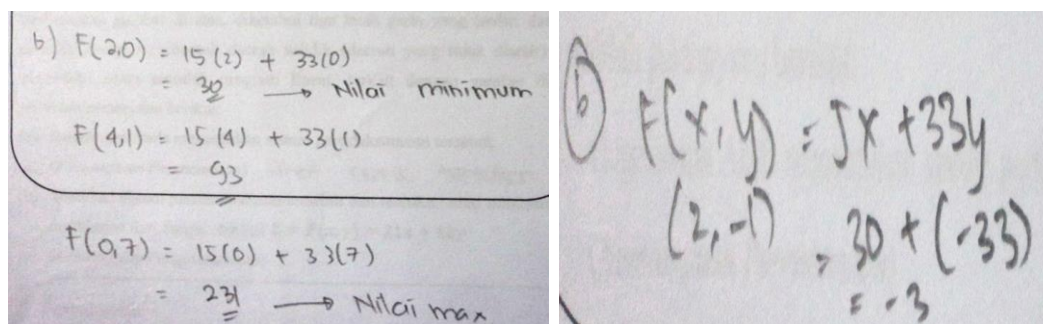 b) F(2,0) = 15(2) + 33(0)
= 30 → Nilai minimum
F(4,1) = 15(4) + 33(1)
= 93
F(0,7) = 15(0) + 33(7)
= 231 → Nilai max
b F(x,y) = 5x + 33y
(2,-1) = 30 + (-33)
= -3